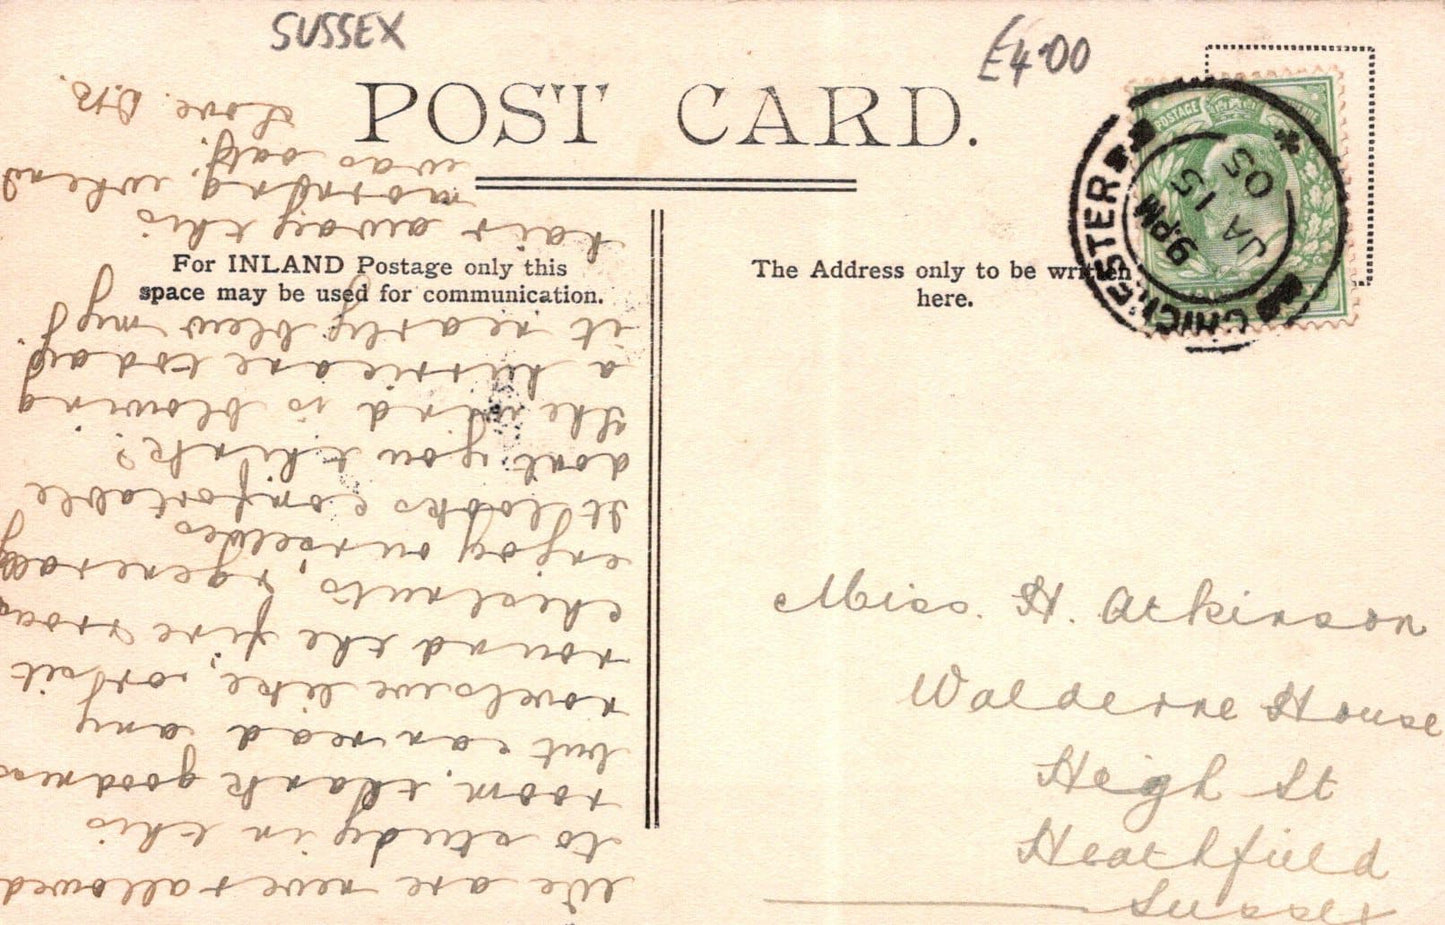 SUSSEX
£4.00
POST CARD.
For INLAND Postage only this
space may be used for communication.
The Address only to be written
here.
CHICHESTER
9.PM
JA 15
05
POSTAGE
We are never allowed
to study in this
room, thank goodness
but can read any
novels we like, or sit
round the fire & roast
chesnuts, & generally
enjoy ourselves
It looks comfortable
dont you think?
The wind is blowing
a hurricane today
it nearly blew my
hair away this
morning, when I
was out.
Love.
Miss. H. Atkinson
Walderne House
High St
Heathfield
Sussex